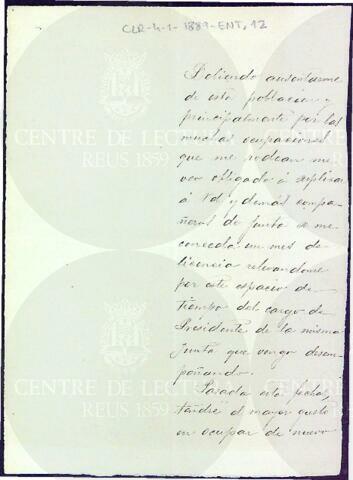 CLR-4-1-1889-ENT, 12
Debiendo ausentarme
de esta poblacion y
principalmente por las
muchas ocupaciones
que me rodean me
veo obligado á suplicar
á Vd. y demás compa-
ñeros de Junta se me
conceda un mes de
licencia relevandome
por este espacio de
tiempo del cargo de
Presidente de la misma
Junta que vengo desem-
peñando.
Pasada esta fecha,
tendré el mayor gusto
en ocupar de nuevo
CENTRE DE LECTURA
REUS 1859
CENTRE DE LECTURA
REUS 1859